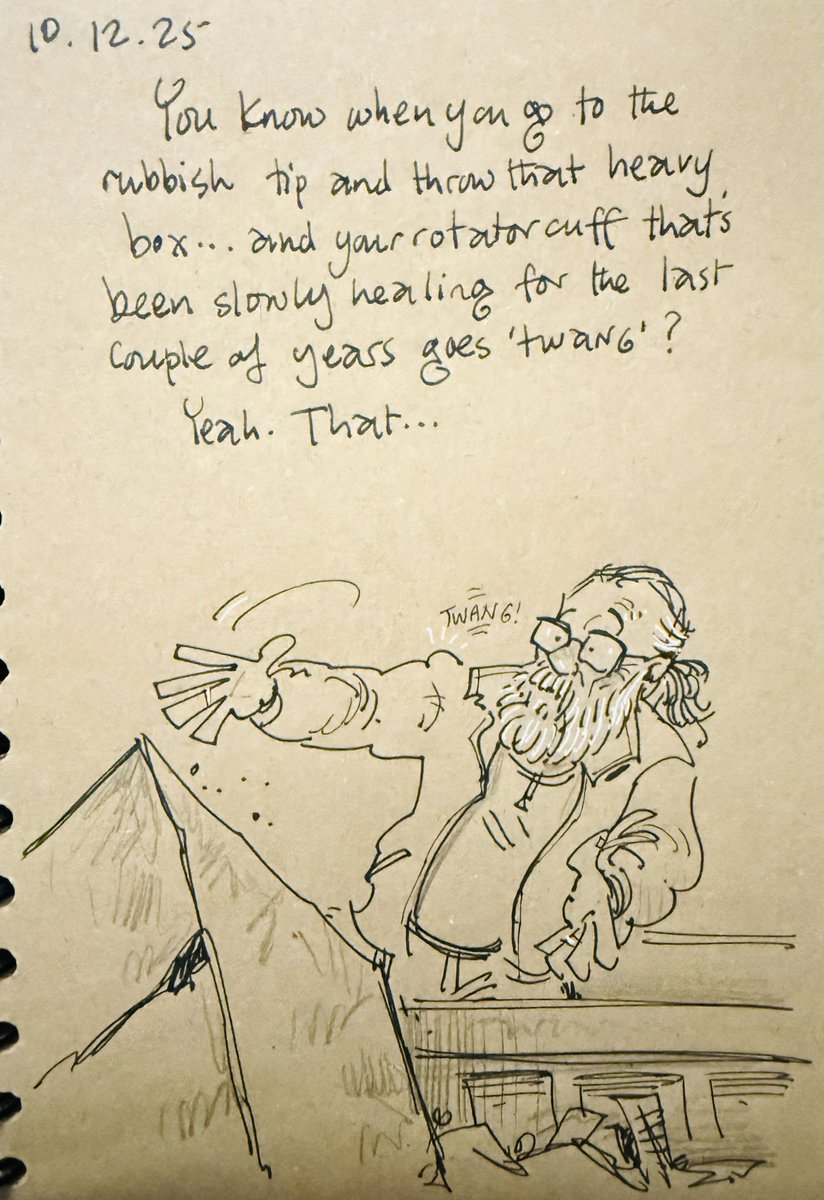 10.12.25
You know when you go to the
rubbish tip and throw that heavy
box... and your rotator cuff that's
been slowly healing for the last
couple of years goes 'twang'?
Yeah. That...
TWANG!